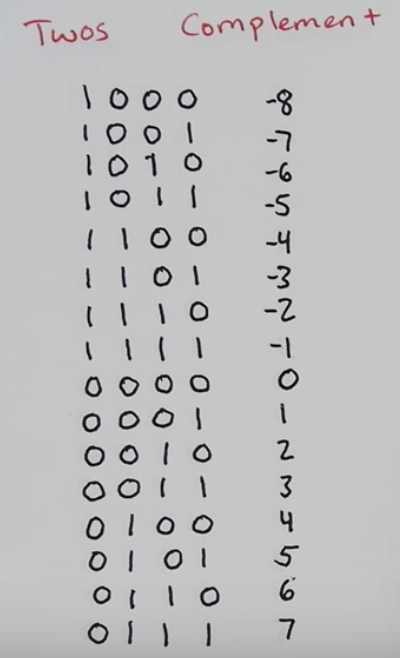 Twos Complement
1 0 0 0 -8
1 0 0 1 -7
1 0 1 0 -6
1 0 1 1 -5
1 1 0 0 -4
1 1 0 1 -3
1 1 1 0 -2
1 1 1 1 -1
0 0 0 0 0
0 0 0 1 1
0 0 1 0 2
0 0 1 1 3
0 1 0 0 4
0 1 0 1 5
0 1 1 0 6
0 1 1 1 7